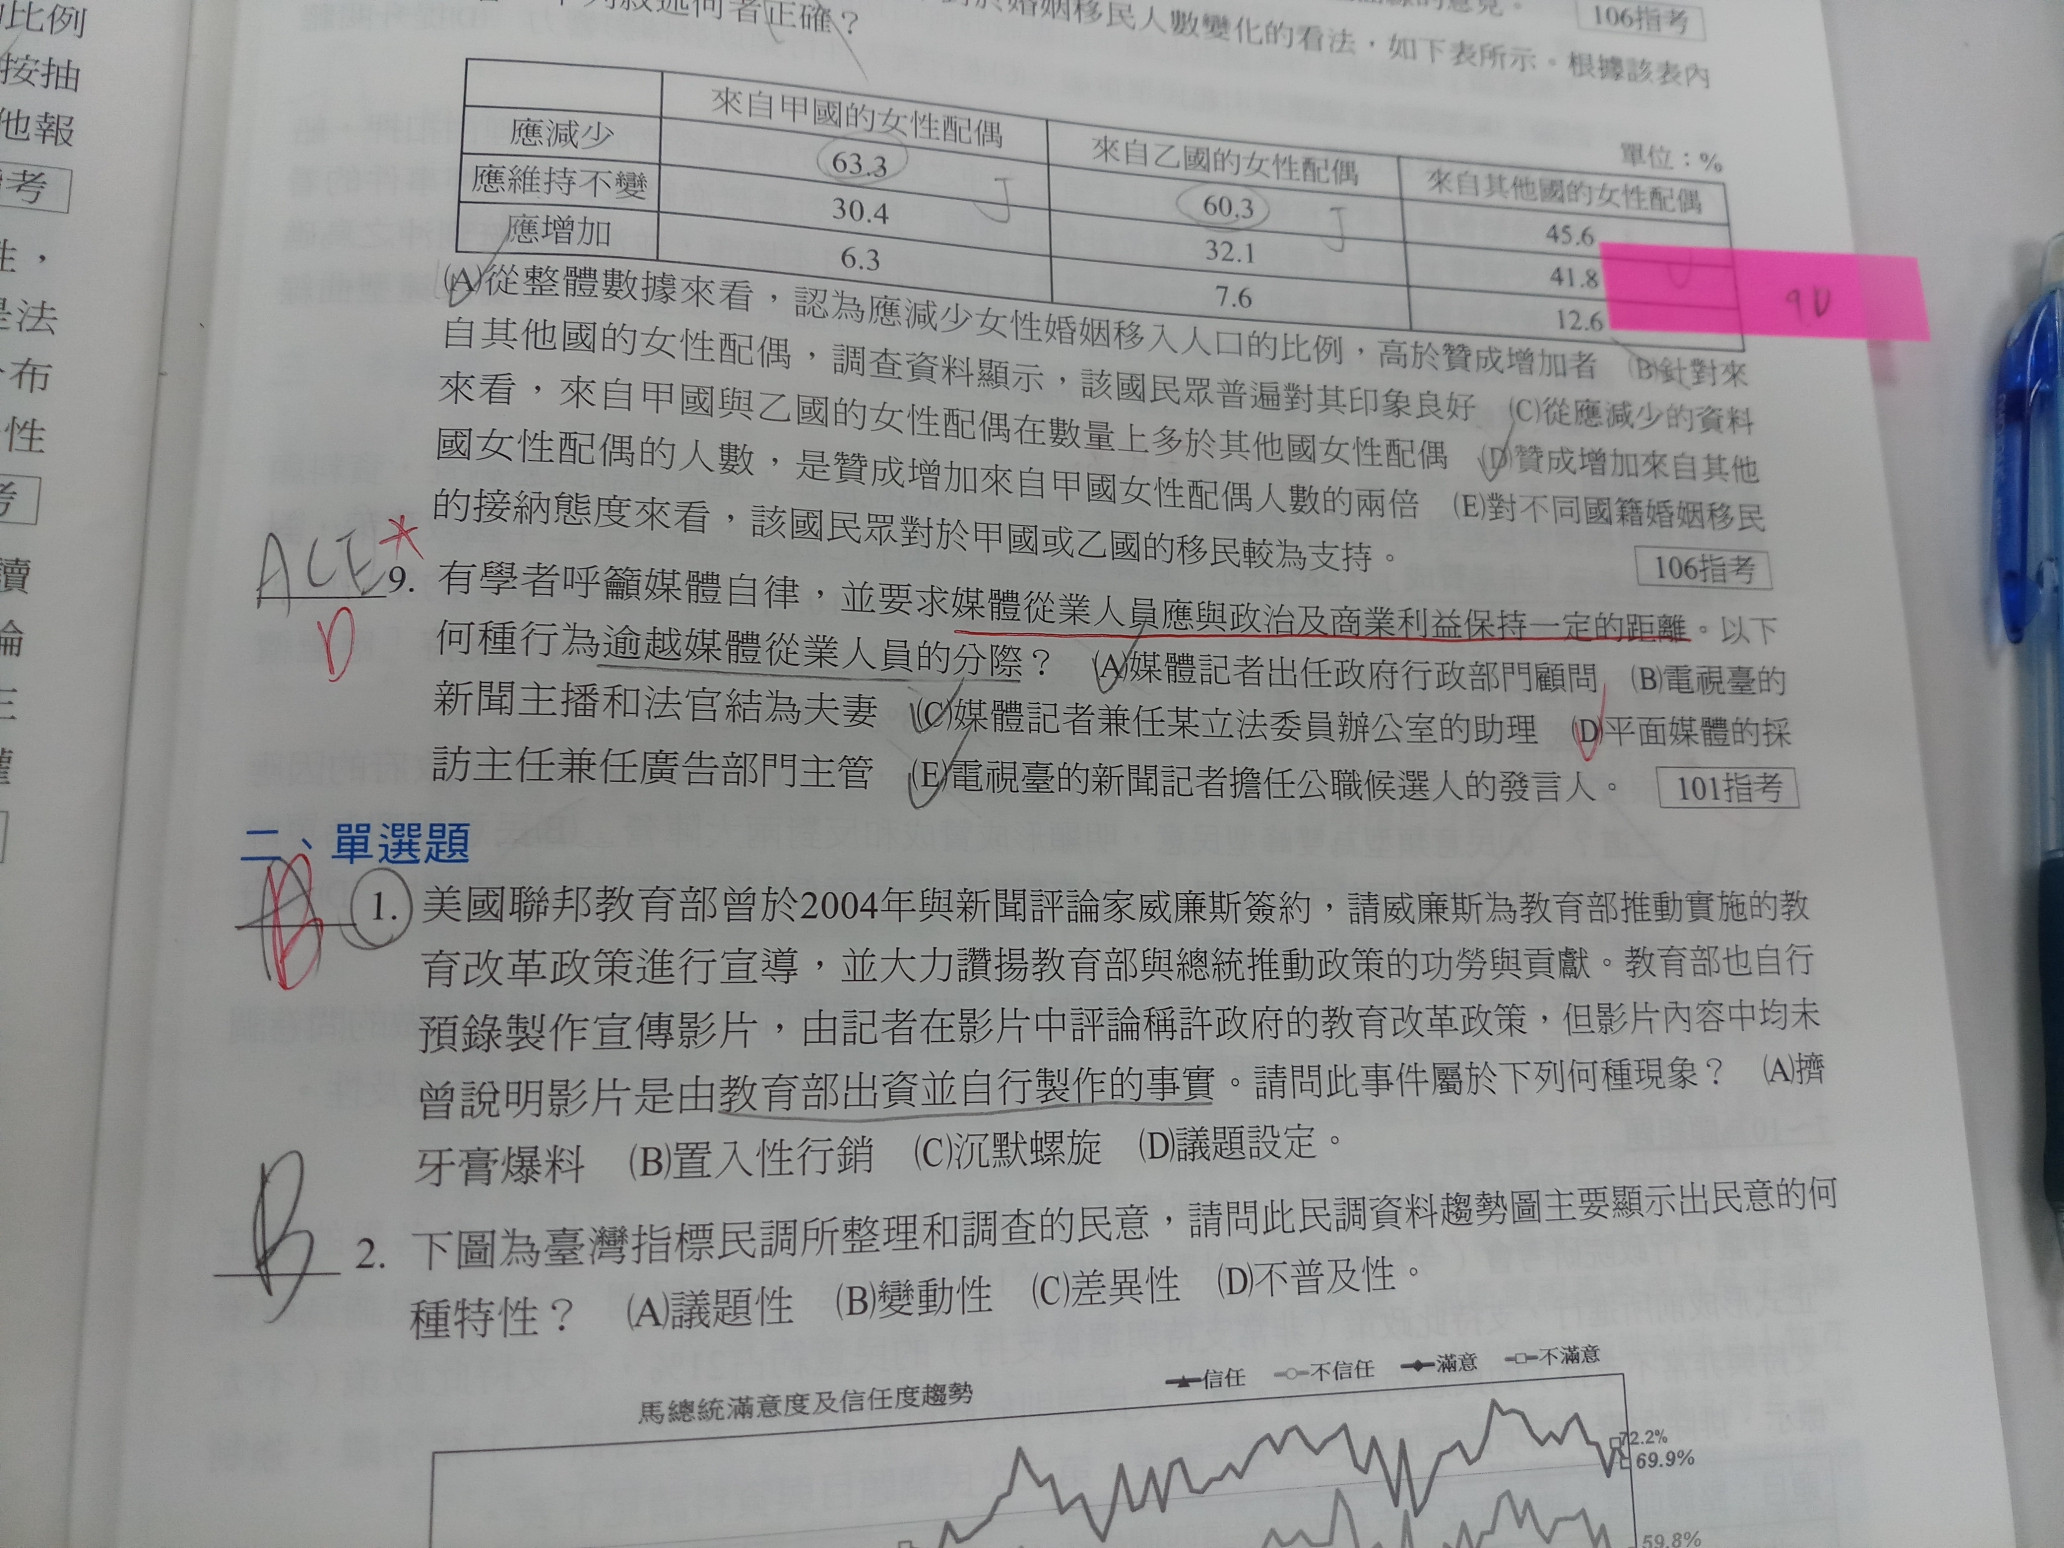 比例
按抽
他報
考
性，
是法
布
性
考
讀
論
下列敘述何者正確？
對於婚姻移民人數變化的看法，如下表所示。根據該表內
106指考
單位：%
來自甲國的女性配偶 來自乙國的女性配偶 來自其他國的女性配偶
應減少 63.3 60.3 45.6
應維持不變 30.4 32.1 41.8
應增加 6.3 7.6 12.6
9D
(A)從整體數據來看，認為應減少女性婚姻移入人口的比例，高於贊成增加者 (B)針對來
自其他國的女性配偶，調查資料顯示，該國民眾普遍對其印象良好 (C)從應減少的資料
來看，來自甲國與乙國的女性配偶在數量上多於其他國女性配偶 (D)贊成增加來自其他
國女性配偶的人數，是贊成增加來自甲國女性配偶人數的兩倍 (E)對不同國籍婚姻移民
的接納態度來看，該國民眾對於甲國或乙國的移民較為支持。 106指考
ACE
D
9. 有學者呼籲媒體自律，並要求媒體從業人員應與政治及商業利益保持一定的距離。以下
何種行為逾越媒體從業人員的分際？ (A)媒體記者出任政府行政部門顧問 (B)電視臺的
新聞主播和法官結為夫妻 (C)媒體記者兼任某立法委員辦公室的助理 (D)平面媒體的採
訪主任兼任廣告部門主管 (E)電視臺的新聞記者擔任公職候選人的發言人。 101指考
二、單選題
B 1. 美國聯邦教育部曾於2004年與新聞評論家威廉斯簽約，請威廉斯為教育部推動實施的教
育改革政策進行宣導，並大力讚揚教育部與總統推動政策的功勞與貢獻。教育部也自行
預錄製作宣傳影片，由記者在影片中評論稱許政府的教育改革政策，但影片內容中均未
曾說明影片是由教育部出資並自行製作的事實。請問此事件屬於下列何種現象？ (A)擠
牙膏爆料 (B)置入性行銷 (C)沉默螺旋 (D)議題設定。
B 2. 下圖為臺灣指標民調所整理和調查的民意，請問此民調資料趨勢圖主要顯示出民意的何
種特性？ (A)議題性 (B)變動性 (C)差異性 (D)不普及性。
馬總統滿意度及信任度趨勢
信任 不信任 滿意 不滿意
72.2%
69.9%
59.8%